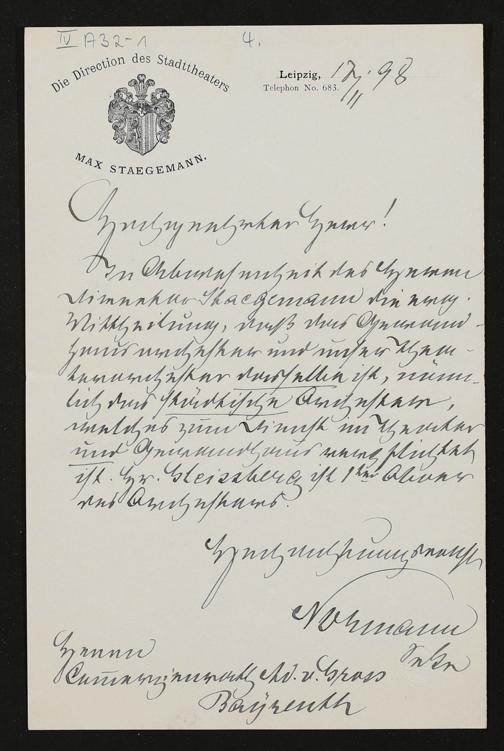 IV A32-1
4.
Die Direction des Stadttheaters
MAX STAEGEMANN.
Leipzig, 17/II 98
Telephon No. 683.
Hochgeehrter Herr!
In Abwesenheit des Herrn
Direktor Staegemann die erg.
Mittheilung, daß das Gewand-
hausorchester und unser Thea-
terorchester dasselbe ist, näm-
lich das städtische Orchester,
welches zum Dienst im Theater
und Gewandhaus verpflichtet
ist. Hr. Gleissberg ist 1ter Oboer
des Orchesters.
Hochachtungsvollst
Nohmann
Sekr
Herrn
Commerzienrath Ad. v. Gross
Bayreuth